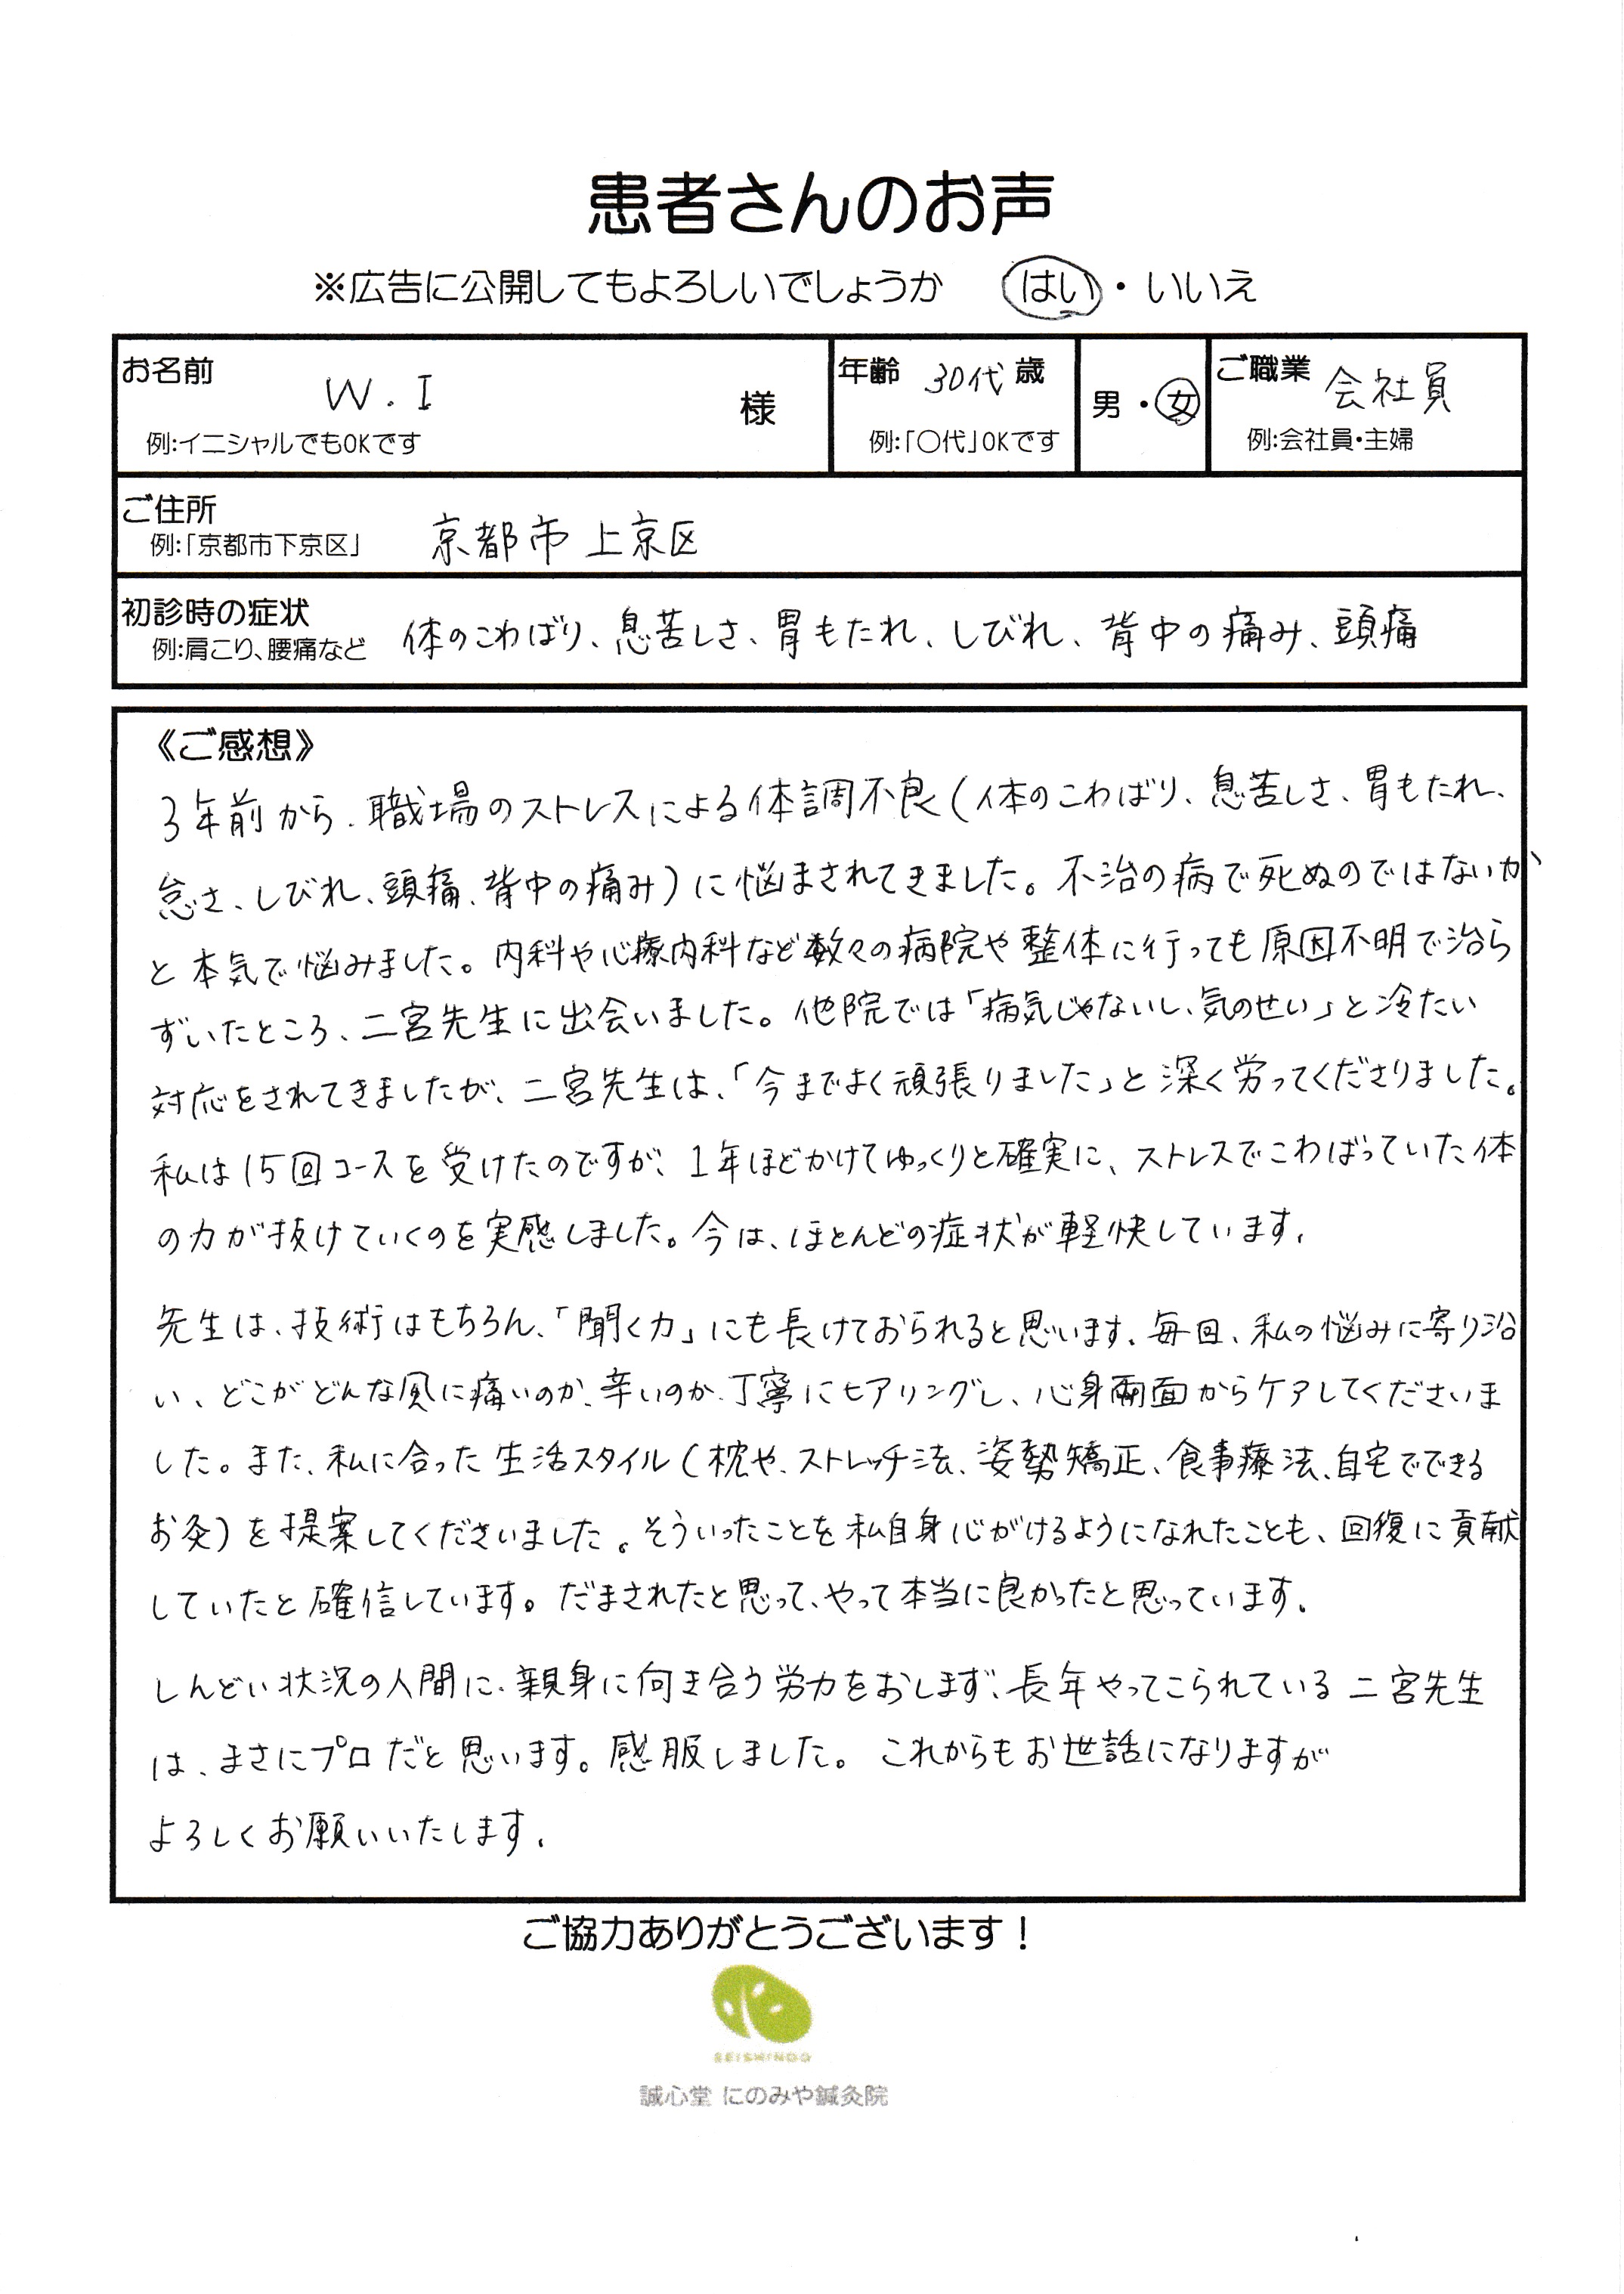 患者さんのお声
※広告に公開してもよろしいでしょうか はい・いいえ
お名前 W.I 様
例:イニシャルでもOKです
年齢 30代 歳
例:「〇代」OKです
男・女
ご職業 会社員
例:会社員・主婦
ご住所
例:「京都市下京区」 京都市上京区
初診時の症状
例:肩こり、腰痛など 体のこわばり、息苦しさ、胃もたれ、しびれ、背中の痛み、頭痛
《ご感想》
3年前から、職場のストレスによる体調不良(体のこわばり、息苦しさ、胃もたれ、
怠さ、しびれ、頭痛、背中の痛み)に悩まされてきました。不治の病で死ぬのではないか、
と本気で悩みました。内科や心療内科など数々の病院や整体に行っても原因不明で治ら
ずいたところ、二宮先生に出会いました。他院では「病気じゃないし、気のせい」と冷たい
対応をされてきましたが、二宮先生は、「今までよく頑張りました」と深く労ってくださりました。
私は15回コースを受けたのですが、1年ほどかけてゆっくりと確実に、ストレスでこわばっていた体
の力が抜けていくのを実感しました。今は、ほとんどの症状が軽快しています。
先生は、技術はもちろん、「聞く力」にも長けておられると思います。毎回、私の悩みに寄り沿
い、どこがどんな風に痛いのか、辛いのか、丁寧にヒアリングし、心身両面からケアしてくださいま
した。また、私に合った生活スタイル(枕や、ストレッチ法、姿勢矯正、食事療法、自宅でできる
お灸)を提案してくださいました。そういったことを私自身心がけるようになれたことも、回復に貢献
していたと確信しています。だまされたと思って、やって本当に良かったと思っています。
しんどい状況の人間に、親身に向き合う労力をおしまず、長年やってこられている二宮先生
は、まさにプロだと思います。感服しました。これからもお世話になりますが
よろしくお願いいたします。
ご協力ありがとうございます！
SEISHINDO
誠心堂 にのみや鍼灸院